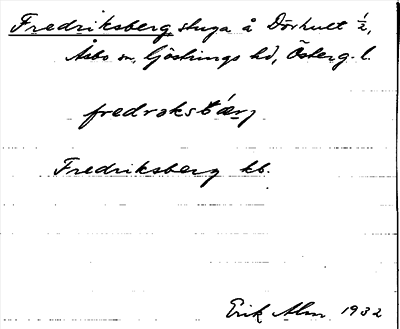 Fredriksberg stuga å Dörhult 1/2,
Åsbo sn, Göstrings hd, Österg. l.
fredrəksbǽrj
Fredriksberg kb.
Erik Alm 1932